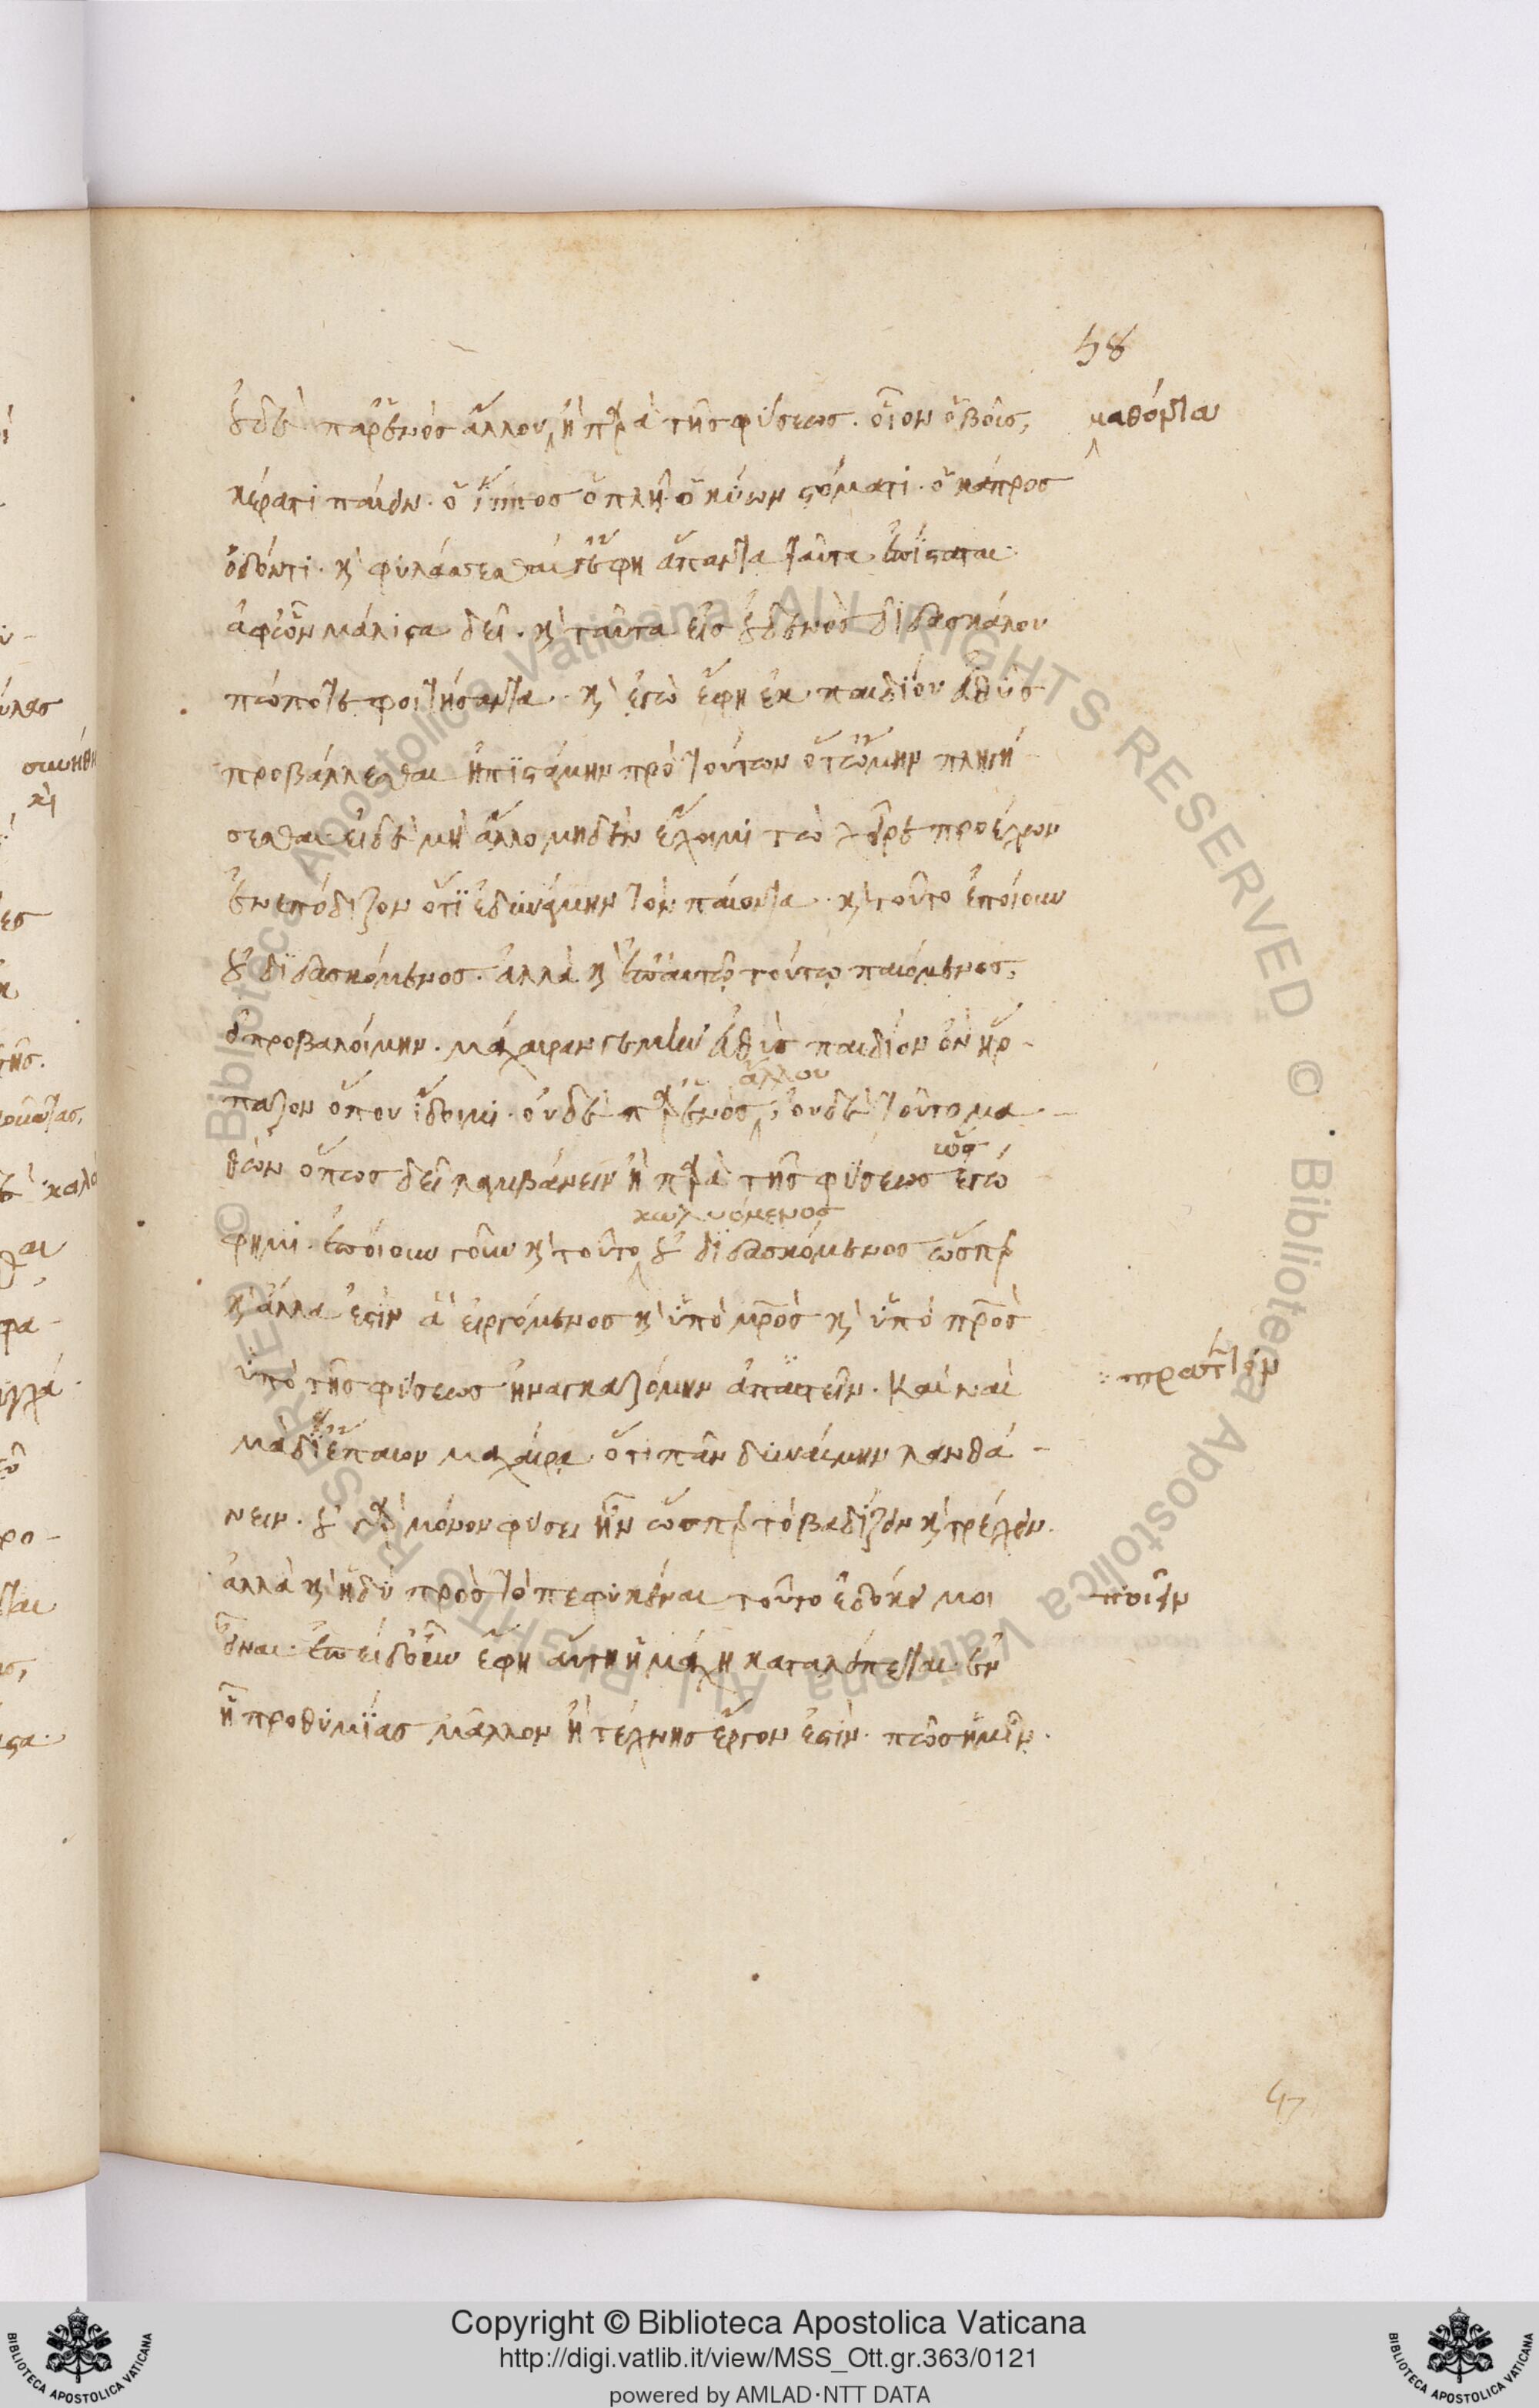 58
οὐδὲ παρ' ἑνὸς ἄλλου ἢ παρὰ τῆς φύσεως. οἷον ὁ βοῦς,
μαθόντα
κέρατι παίειν. ὁ ἵππος ὁπλῇ. ὁ κύων στόματι. ὁ κάπρος
ὀδόντι. καὶ φυλάττεσθαί γ' ἔφη ἅπαντα ταῦτα ἐπίσταται
ἀφ' ὧν μάλιστα δεῖ. καὶ ταῦτα εἰς οὐδενὸς διδασκάλου
πώποτε φοιτήσαντα. καὶ ἐγὼ ἔφη ἐκ παιδίου εὐθὺς
προβάλλεσθαι ἠπιστάμην πρὸ τούτων ὅτῳ ᾤμην πληγή-
σεσθαι εἰ δὲ μὴ ἄλλο μηδὲν ἔχοιμι τὼ χεῖρε προέχων
ἐνεπόδιζον ὅτι ἐδυνάμην τὸν παίοντα. καὶ τοῦτο ἐποίουν
οὐ διδασκόμενος. ἀλλὰ καὶ ἐπ' αὐτῷ τούτῳ παιόμενος,
εἰ προβαλοίμην. μάχαιραν γε μὴν εὐθὺς παιδίον ὢν ἥρ-
παζον ὅπου ἴδοιμι. οὐδὲ παρ' ἑνὸς, οὐδὲ τοῦτο μα-
ἄλλου
θὼν ὅπως δεῖ λαμβάνειν ἢ παρὰ τῆς φύσεως ἐγώ
ὡς
φημι. ἐποίουν γοῦν καὶ τοῦτο οὐ διδασκόμενος ὥσπερ
κωλυόμενος
καὶ ἄλλα ἐστὶν ἃ εἰργόμενος καὶ ὑπὸ μρὸς καὶ ὑπὸ πρὸς
ὑπὸ τῆς φύσεως ἠναγκαζόμην ἀπαιτεῖν. Καὶ ναὶ
πράττειν
μὰ δί' ἔπαιον μαχαίρᾳ ὅτι πᾶν δυναίμην λανθά-
νειν. οὐ γὰρ μόνον φύσει ἦν ὥσπερ τὸ βαδίζειν καὶ τρέχειν.
ἀλλὰ καὶ ἡδὺ πρὸς τὸ πεφυκέναι τοῦτο ἐδόκει μοι
ποιεῖν
εἶναι. ἐπεὶ δ' οὖν ἔφη αὕτη ἡ μάχη καταλείπεται ἐν
ᾗ προθυμίας μᾶλλον ἢ τέχνης ἔργον ἐστὶν. πῶς ἡμῖν.
47
© Biblioteca Apostolica Vaticana ALL RIGHTS RESERVED
Copyright © Biblioteca Apostolica Vaticana
http://digi.vatlib.it/view/MSS_Ott.gr.363/0121
powered by AMLAD·NTT DATA
BIBLIOTECA APOSTOLICA VATICANA
BIBLIOTECA APOSTOLICA VATICANA